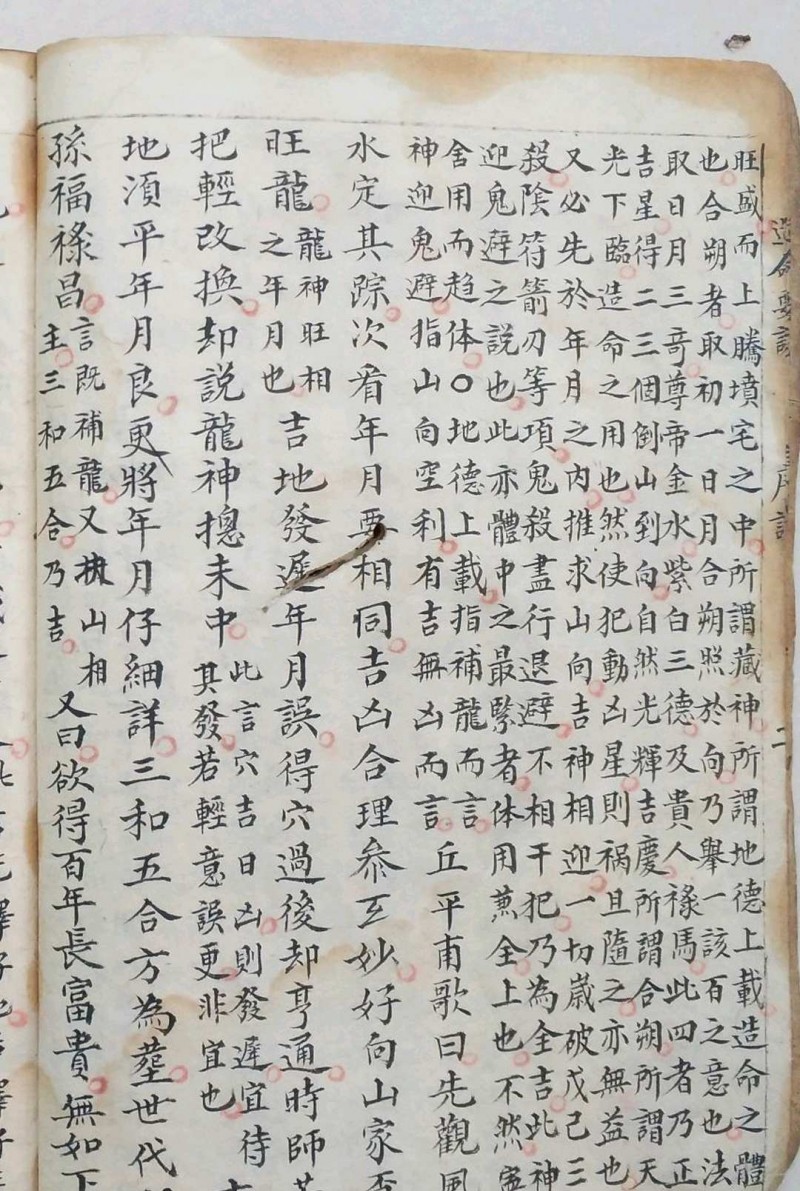 造命要訣
旺盛而上騰墳宅之中所謂藏神所謂地德上載造命之體
也合朔者取初一日月合朔照於向乃舉一該百之意也法
取日月三奇尊帝金水紫白三德及貴人祿馬此四者乃正
吉星得二三個倒山到向自然光輝吉慶所謂合朔所謂天
光下臨造命之用也然使犯動凶星則禍且隨之亦無益也
又必先於年月之內推求山向吉神相迎一切歲破戊己三
殺陰符箭刃等項鬼殺盡行退避不相干犯乃為全吉此神
迎鬼避之說也此亦體中之最緊者体用蒽全上也不然寧
舍用而趋体○地德上載指補龍而言
神迎鬼避指山向空利有吉無凶而言
丘平甫歌曰先觀風
水定其踪次看年月要相同吉凶合理叅互妙好向山家
旺龍
龍神旺相
之年月也
吉地發遲年月誤得穴過後却亨通時師
把輕改換却說龍神摠未中
此言穴吉日凶則發遲宜待
其發若輕意誤更非宜也
地湏平年月良更將年月仔細詳三和五合方為塟世代
孫福祿昌
言既補龍又執山相
主三和五合乃吉
又曰欲得百年長富貴無如下